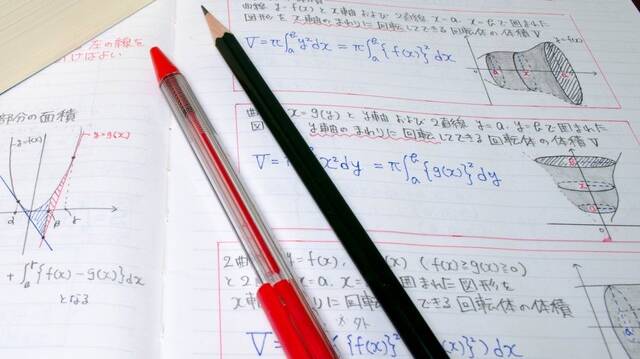 左の線を
ければよい
部分の面積
y=f(x)
y=g(x)
α
β
γ
+∫{f(x)-g(x)}dx
となる
曲線 y=f(x)とx軸および2直線 x=a, x=bで囲まれた
図形をx軸のまわりに回転してできる回転体の体積V
V=π∫ₐᵇy²dx=π∫ₐᵇ{f(x)}²dx
a
x
b
x=g(y)とy軸および2直線 y=a, y=bで囲まれた
y軸のまわりに回転してできる回転体の体積V
V=
x²dy=π∫ₐᵇ{g(x)}²dy
b
x
a
2曲
y=f(x),
(x) (f(x)≧g(x)≧0)
と2
x=a, x=
囲まれた図形を
x軸
りに回転
できる回転体の体積
外
V=
{f(x)}²
(x)}²)dx